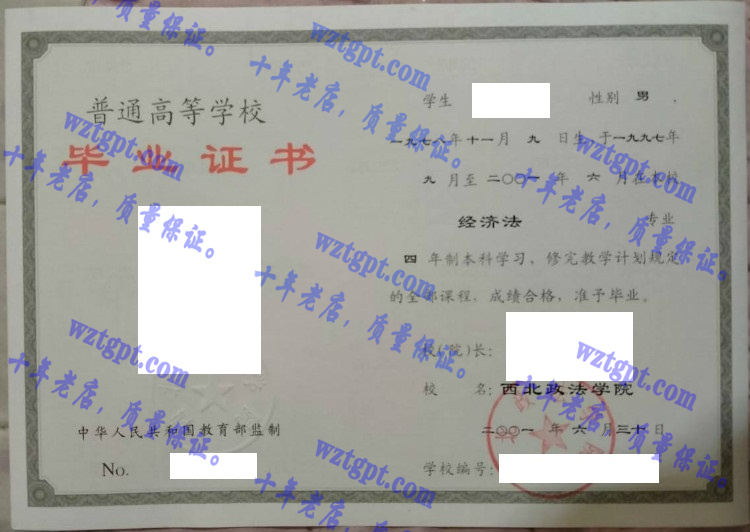 普通高等学校
毕业证书
中华人民共和国教育部监制
No.
学生 性别 男
一九七八年十一月 九 日生 于一九九七年
九 月至 二〇〇一 年 六 月在本校
经济法 专业
四 年制本科学习，修完教学计划规定
的全部课程，成绩合格，准予毕业。
校(院)长：
校 名：西北政法学院
二〇〇一 年 六 月三十日
学校编号：
wztgpt.com
十年老店，质量保证。
wztgpt.com
十年老店，质量保证。
wztgpt.com
十年老店，质量保证。
wztgpt.com
十年老店，质量保证。
wztgpt.com
十年老店，质量保证。
wztgpt.com
十年老店，质量保证。
wztgpt.com
十年老店，质量保证。